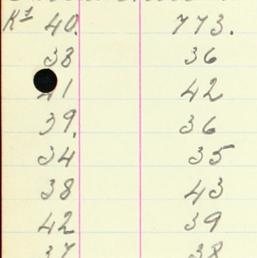 K¹ 40. 773.
38 36
41 42
39. 36
34 35
38 43
42 39
37 38